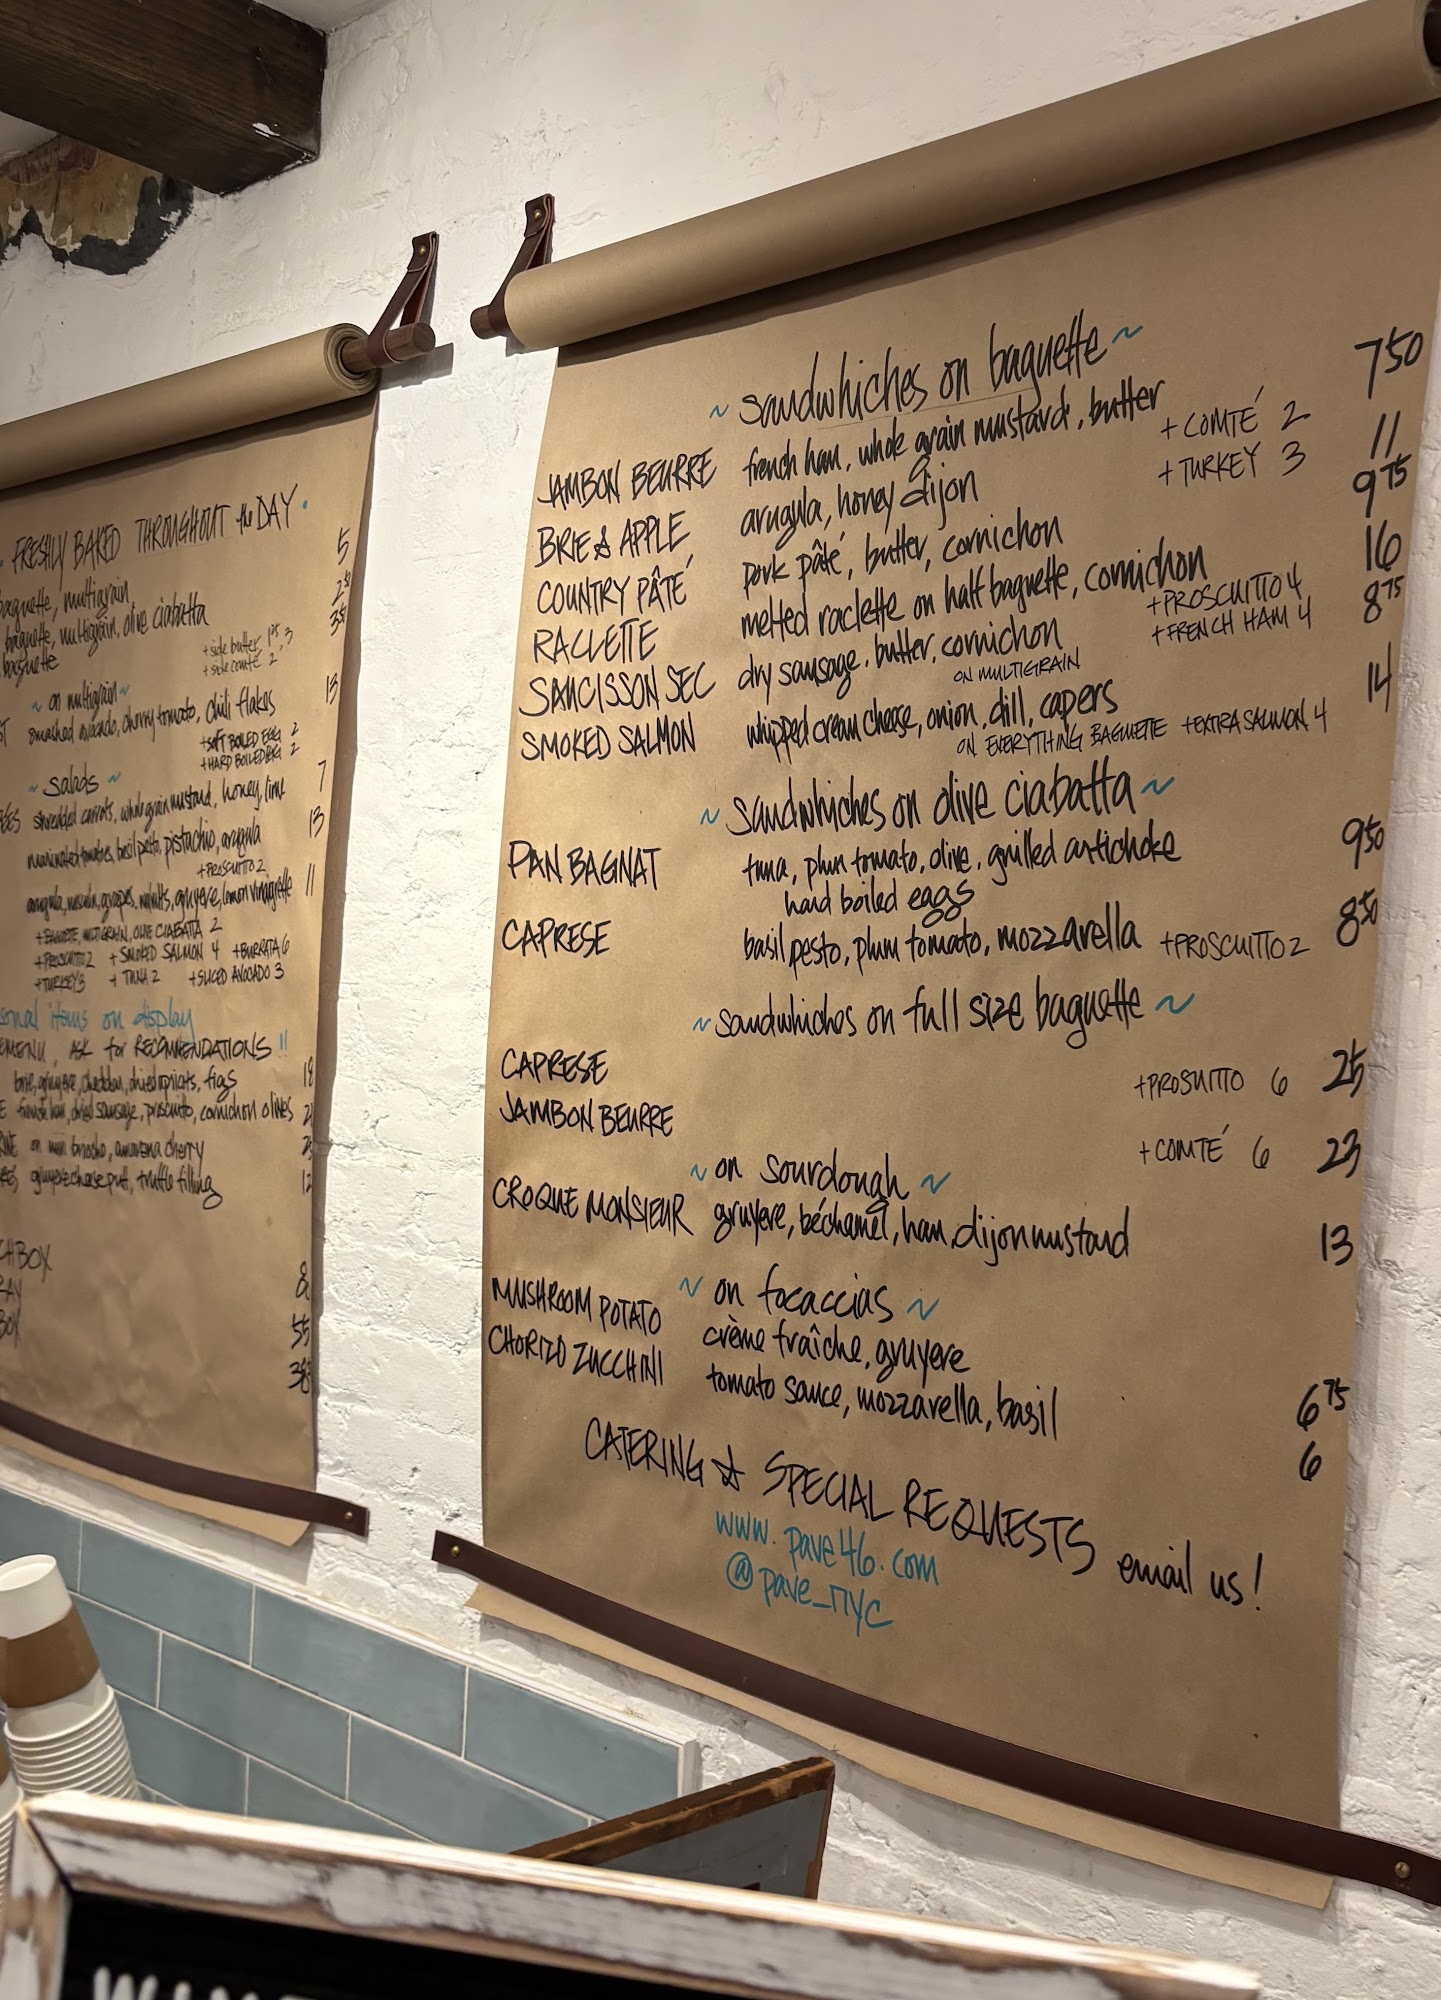 FRESHLY BAKED THROUGHOUT the DAY
baguette, multigrain 5
baguette, multigrain, olive ciabatta 2 50
baguette 3 50
+ side butter 1 75, 3
+ side comté 2
~ on multigrain ~
smashed avocado, cherry tomato, chili flakes 13
+ SOFT BOILED EGG 2
+ HARD BOILED EGG 2
~ Salads ~
shredded carrots, whole grain mustard, honey, lime 7
marinated tomatoes, basil pesto, pistachio, arugula 13
+ PROSCUITTO 2
arugula, mesculin, grapes, walnuts, gruyere, lemon vinaigrette 11
+ BAGUETTE, MULTIGRAIN, OLIVE CIABATTA 2
+ PROSCUITTO 2 + SMOKED SALMON 4 + BURRATA 6
+ TURKEY 3 + TUNA 2 + SLICED AVOCADO 3
items on display
ASK for RECOMMENDATIONS !!
brie, gruyere, cheddar, dried apricots, figs 18
french ham, dried sausage, proscuitto, cornichon olives
on mini brioche, amarena cherry
gruyere cheese puff, truffle filling 12
BOX 8
55
BOX
~ sandwhiches on baguette ~
JAMBON BEURRE french ham, whole grain mustard, butter + COMTÉ 2 7 50
BRIE & APPLE arugula, honey dijon + TURKEY 3 11
COUNTRY PÂTÉ pork pâté, butter, cornichon 9 75
RACLETTE melted raclette on half baguette, cornichon 16
+ PROSCUITTO 4
+ FRENCH HAM 4
SAUCISSON SEC dry sausage, butter, cornichon 8 75
ON MULTIGRAIN
SMOKED SALMON whipped cream cheese, onion, dill, capers 14
ON EVERYTHING BAGUETTE + EXTRA SALMON 4
~ sandwhiches on olive ciabatta ~
PAN BAGNAT tuna, plum tomato, olive, grilled artichoke 9 50
hard boiled eggs
CAPRESE basil pesto, plum tomato, mozzarella + PROSCUITTO 2 8 50
~ sandwhiches on full size baguette ~
CAPRESE + PROSUITTO 6 25
JAMBON BEURRE + COMTÉ 6 23
~ on sourdough ~
CROQUE MONSIEUR gruyere, béchamel, ham, dijon mustard 13
~ on focaccias ~
MUSHROOM POTATO crème fraîche, gruyere 6 75
CHORIZO ZUCCHINI tomato sauce, mozzarella, basil 6
CATERING & SPECIAL REQUESTS email us!
www.pave46.com
@pave_nyc